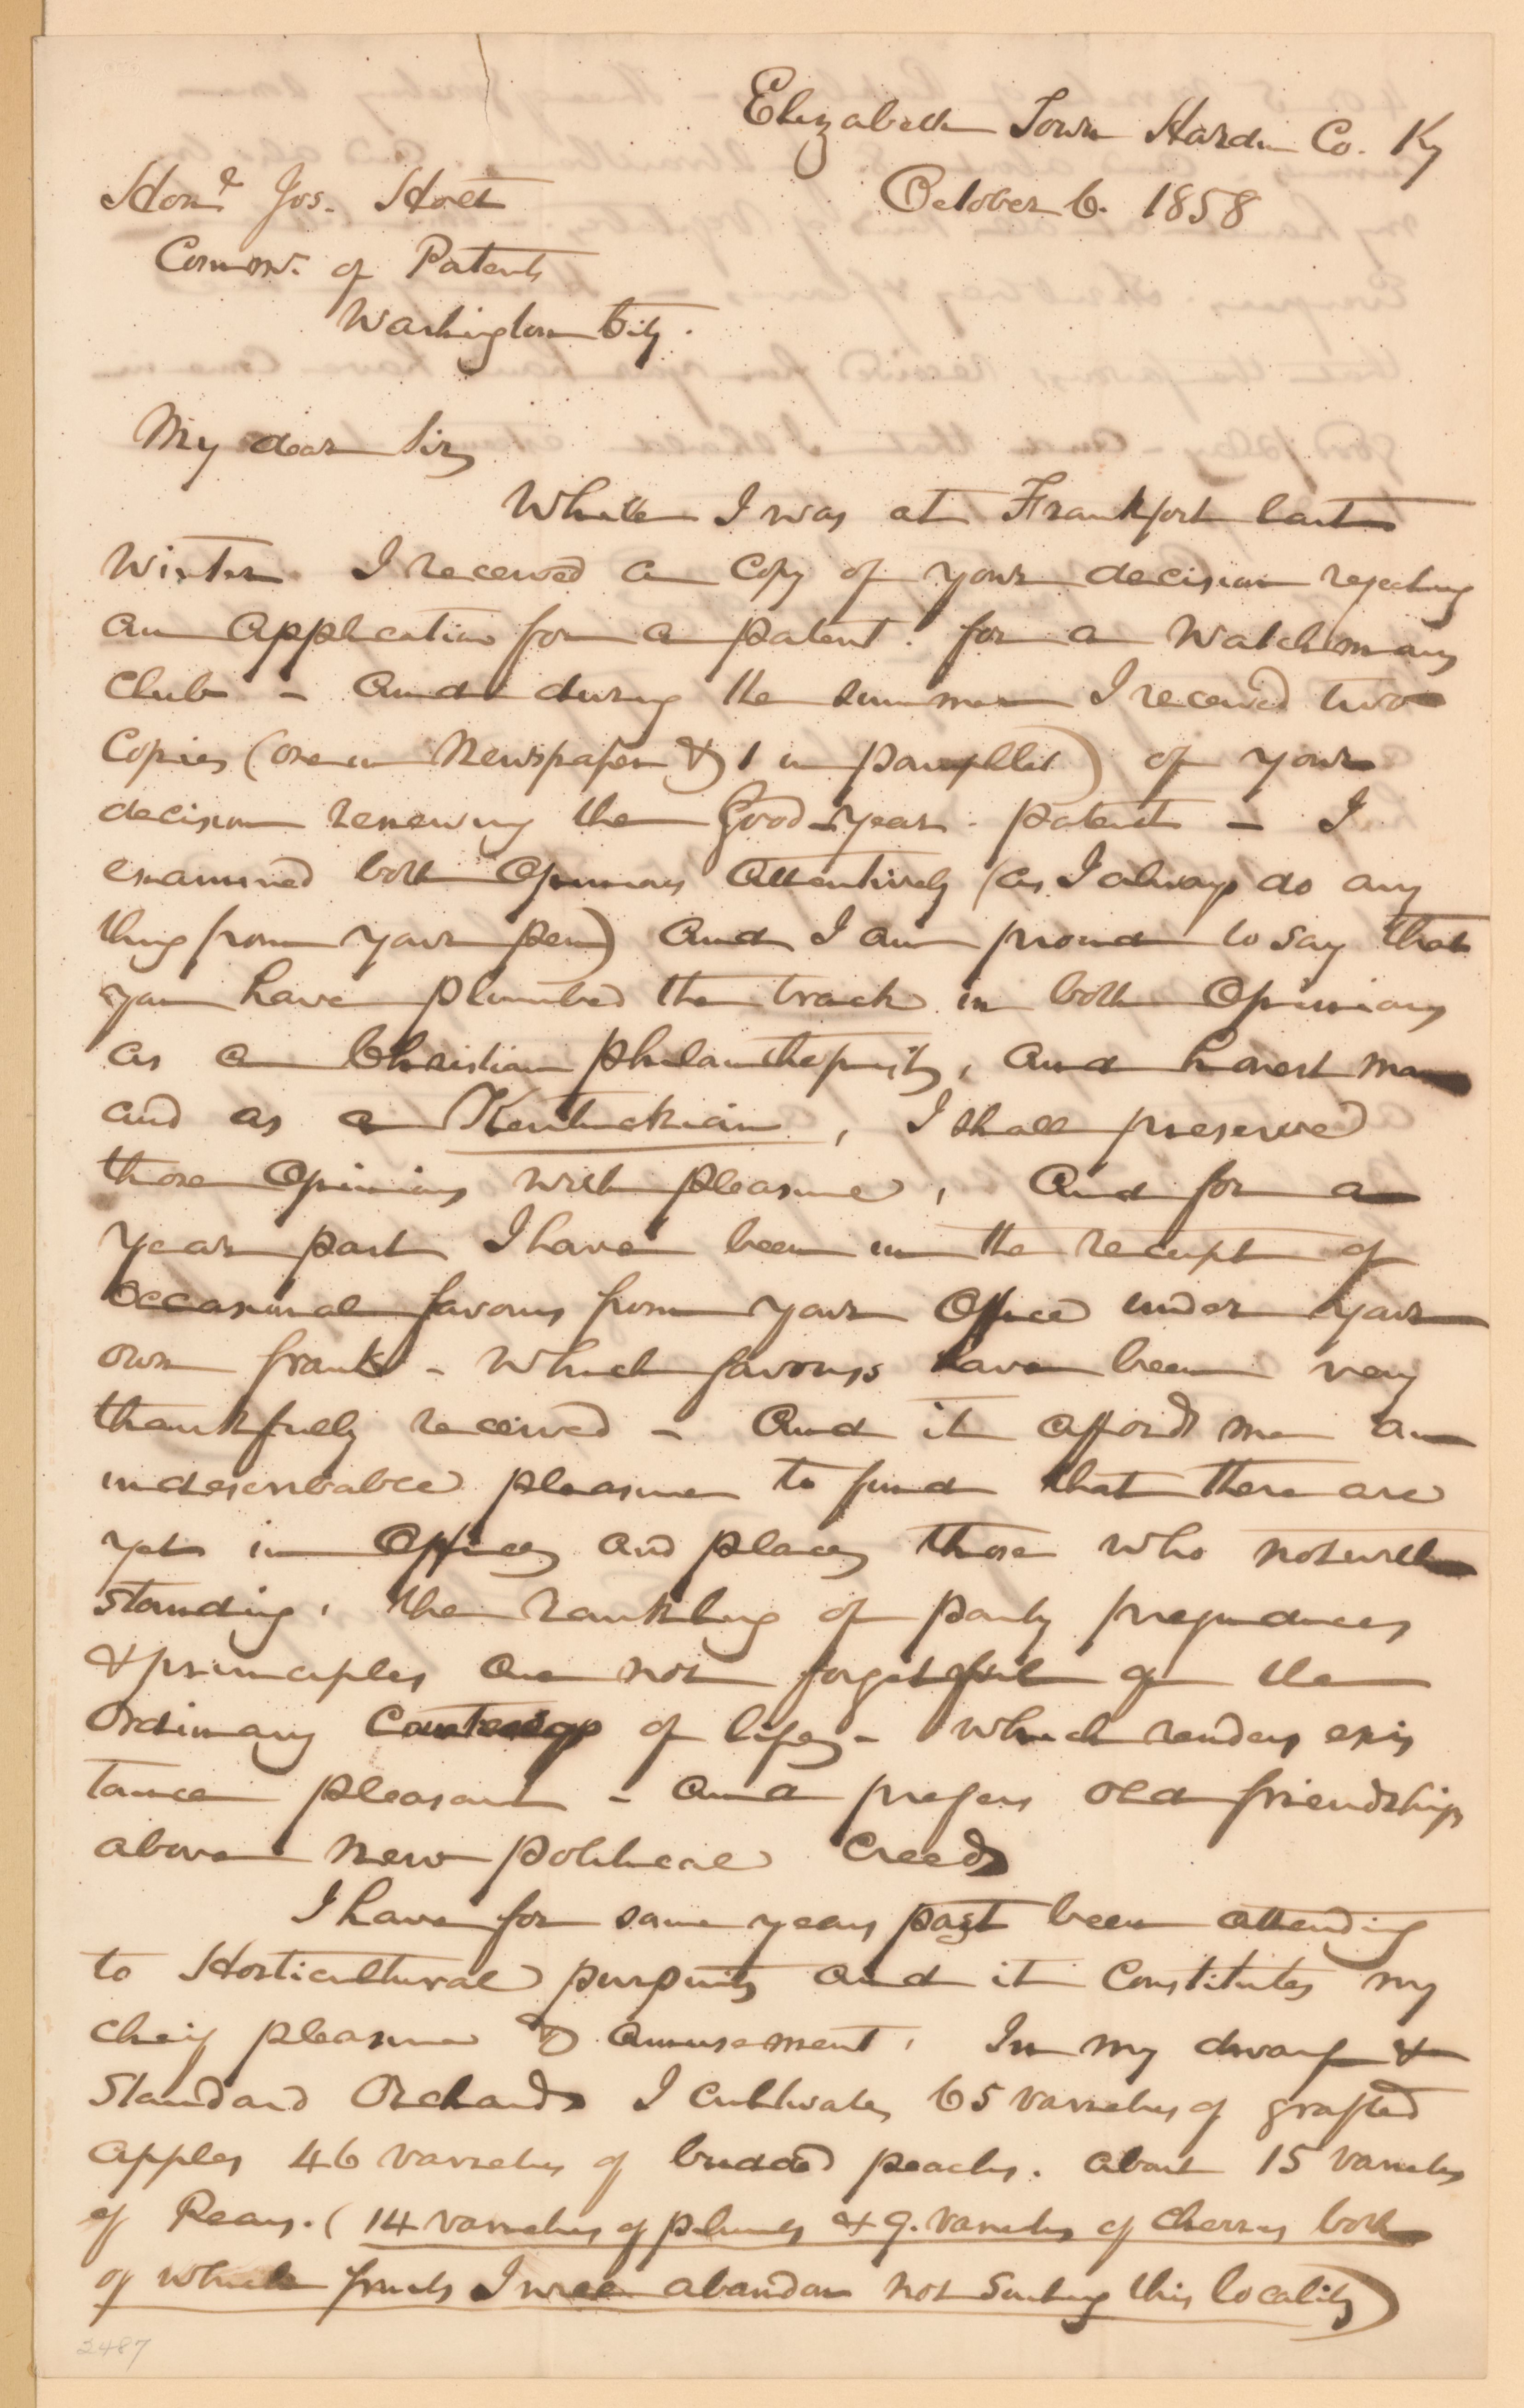 Elizabeth Town Hardin Co. Ky
October 6. 1858
Hond Jos. Holt
Commr. of Patents
Washington City.
My dear Sir,
While I was at Frankfort last
Winter I received a Copy of your decision rejecting
an Application for a patent for a Watchmans
Club - and during the summer I received two
Copies (one in Newspaper & 1 in pamphlet) of your
decision renewing the Good-year patent - I
examined both Opinions Attentively (as I always do any
thing from your pen) and I am proud to say that
you have plumbed the track in both Opinions
as a Christian philanthropist, and honest man
and as a Kentuckian, I shall preserve
those Opinions with pleasure, And for a
year past I have been in the receipt of
occasional favours from your Office under your
own frank - Which favours have been very
thankfully received - And it affords me an
indescribable pleasure to find that there are
yet in Offices and places those who notwith
standing, the rankling of party prejudices
& principles are not forgetful of the
Ordinary of life, - which renders exis
tance pleasant - and prefers old friendships
above new political Creeds
I have for some years past been attending
to Horticultural pursuits and it Constitutes my
cheif pleasure & amusement. In my dwarf &
Standard Orchards I cultivate 65 varieties of grafted
apples 46 varieties of budded peaches. about 15 varieties
of Pears. (14 varieties of plums & 9. varieties of cherries both
of which fruits I will abandon not suiting this locality)
2487